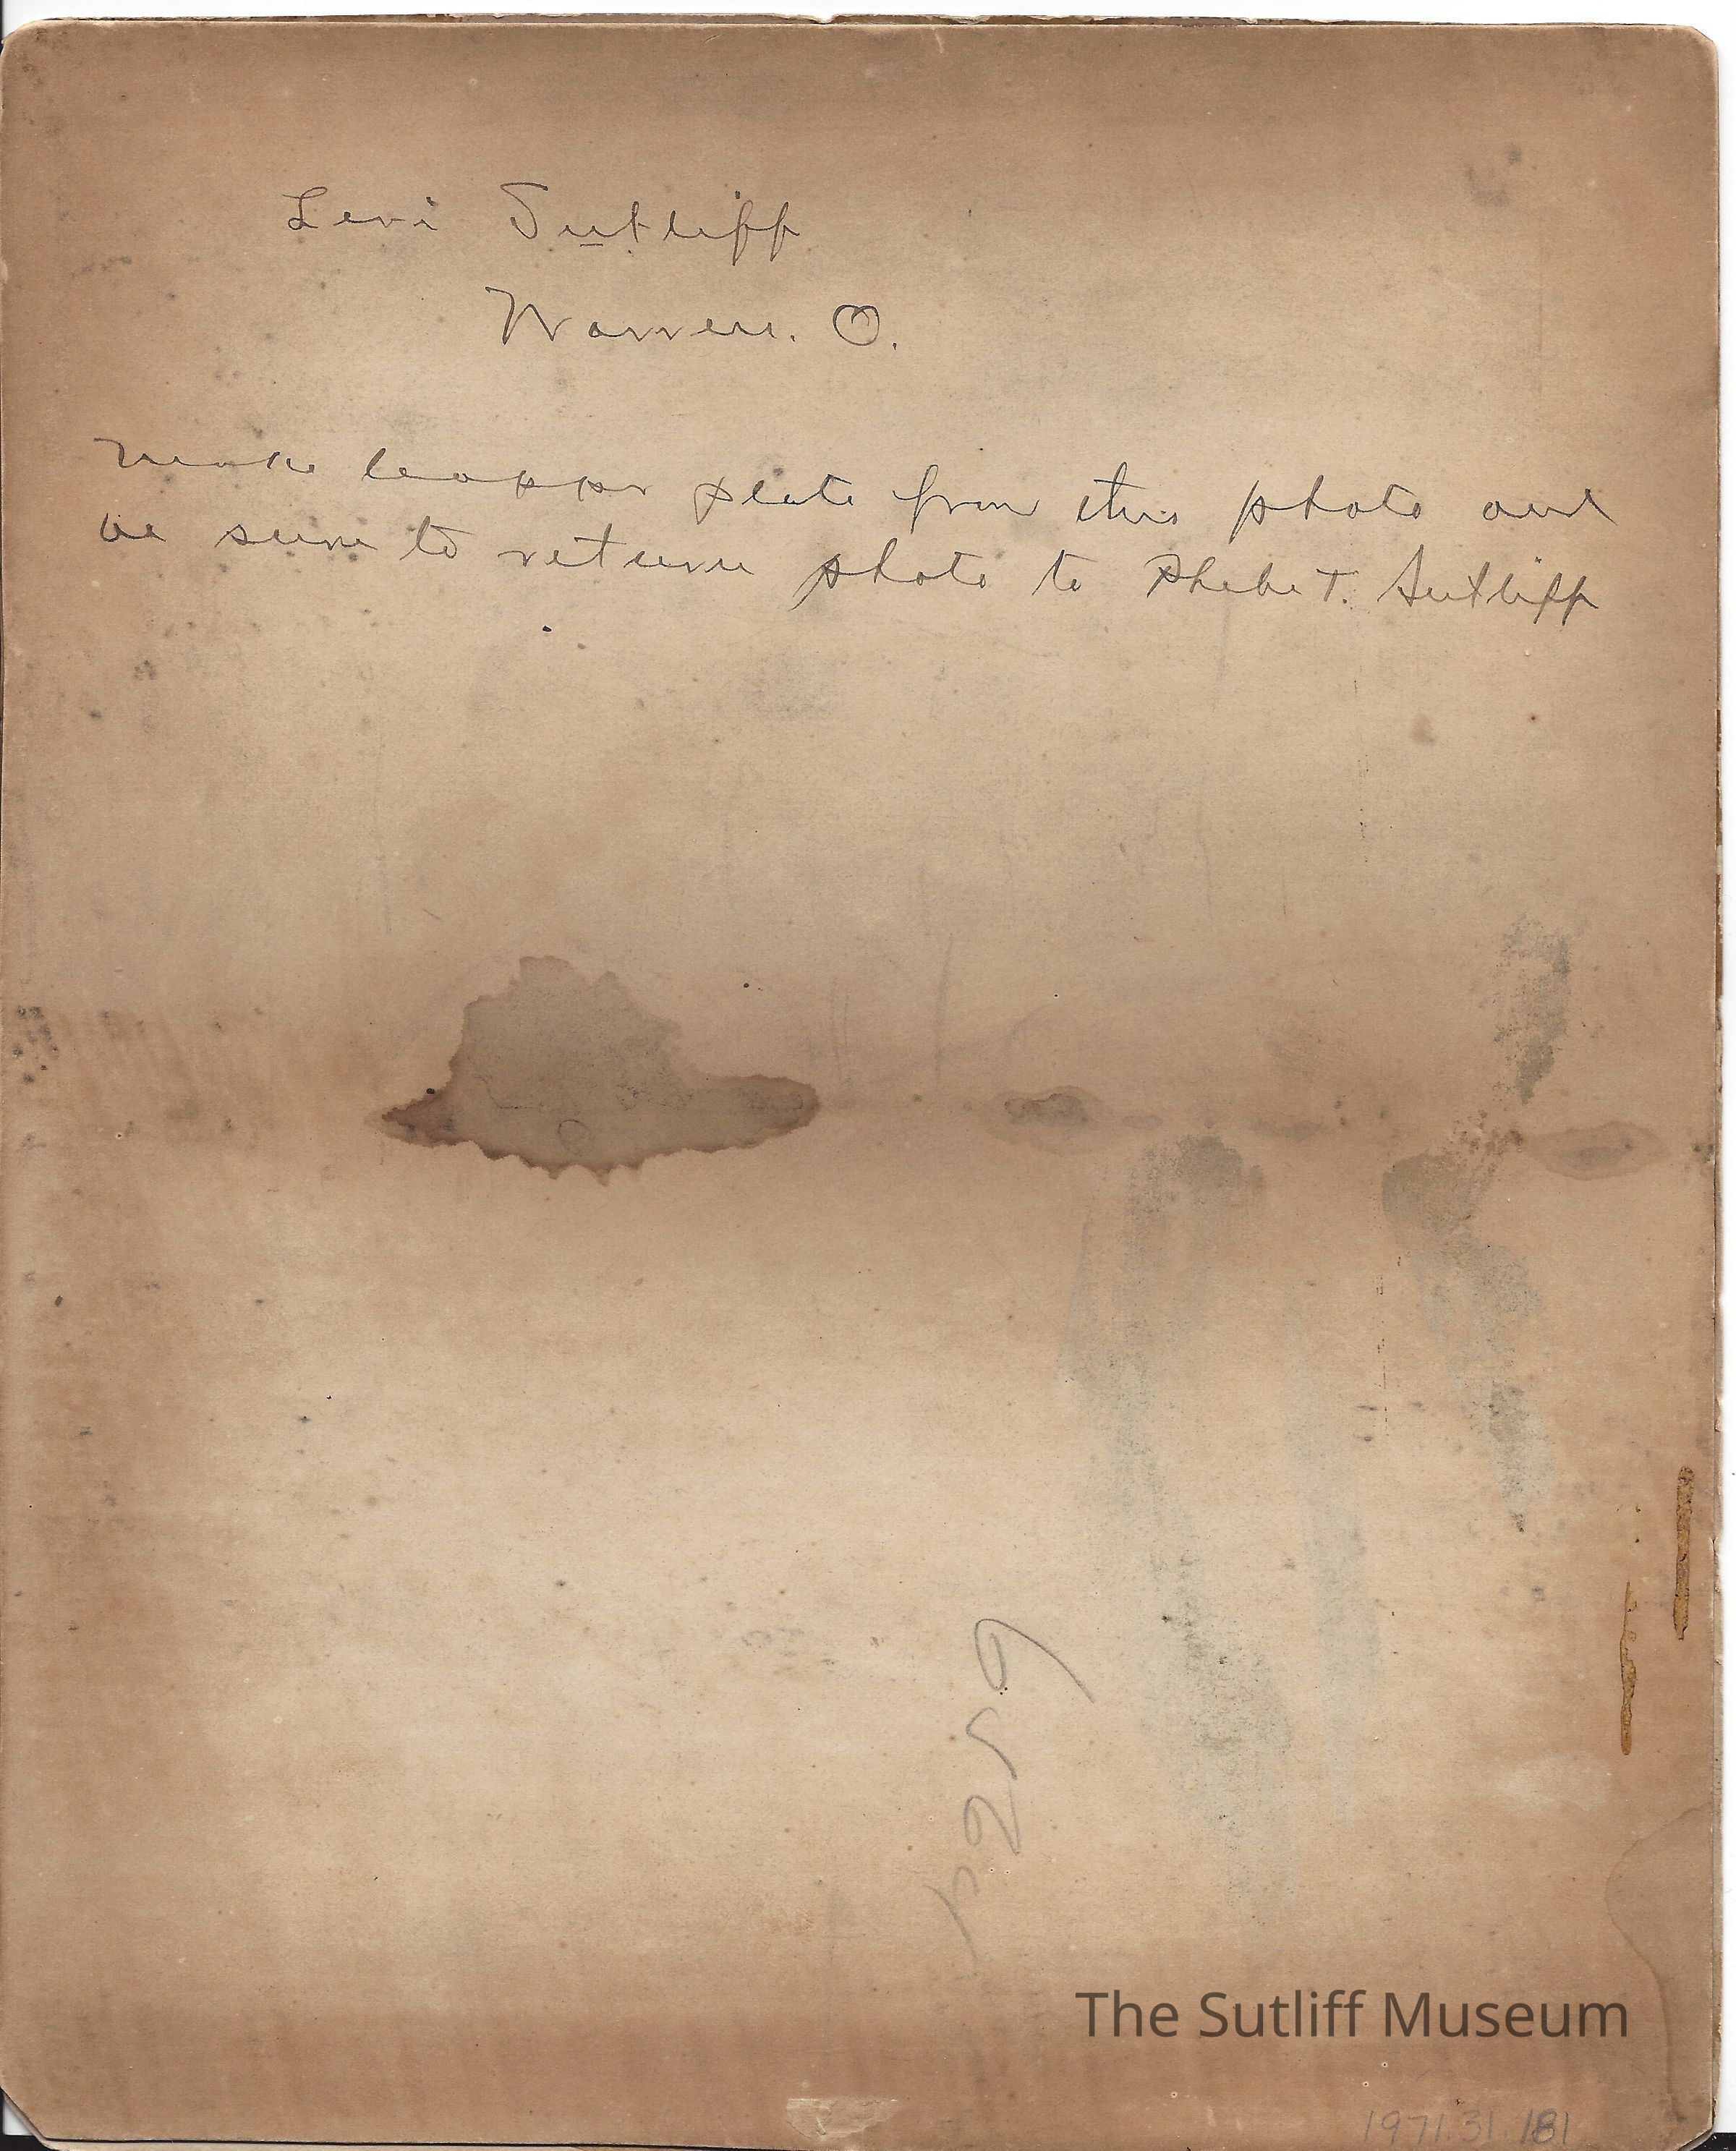 Levi Sutliff
Warren. O.
Make copper plate from this photo and
be sure to return photo to Phebe T. Sutliff
The Sutliff Museum
1971.31.181